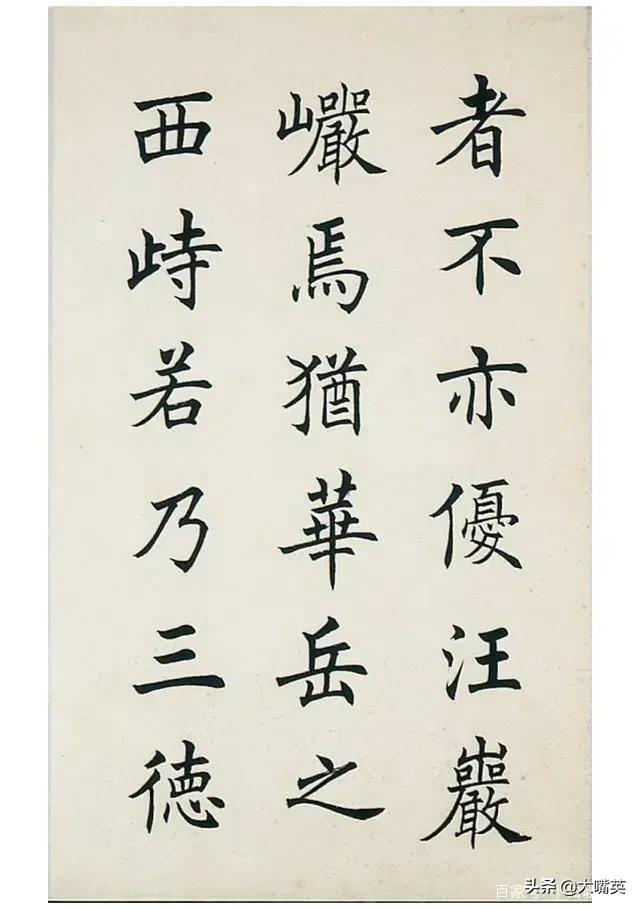 者不亦優汪巖
巗焉猶華岳之
西峙若乃三徳
头条 @大嘴英